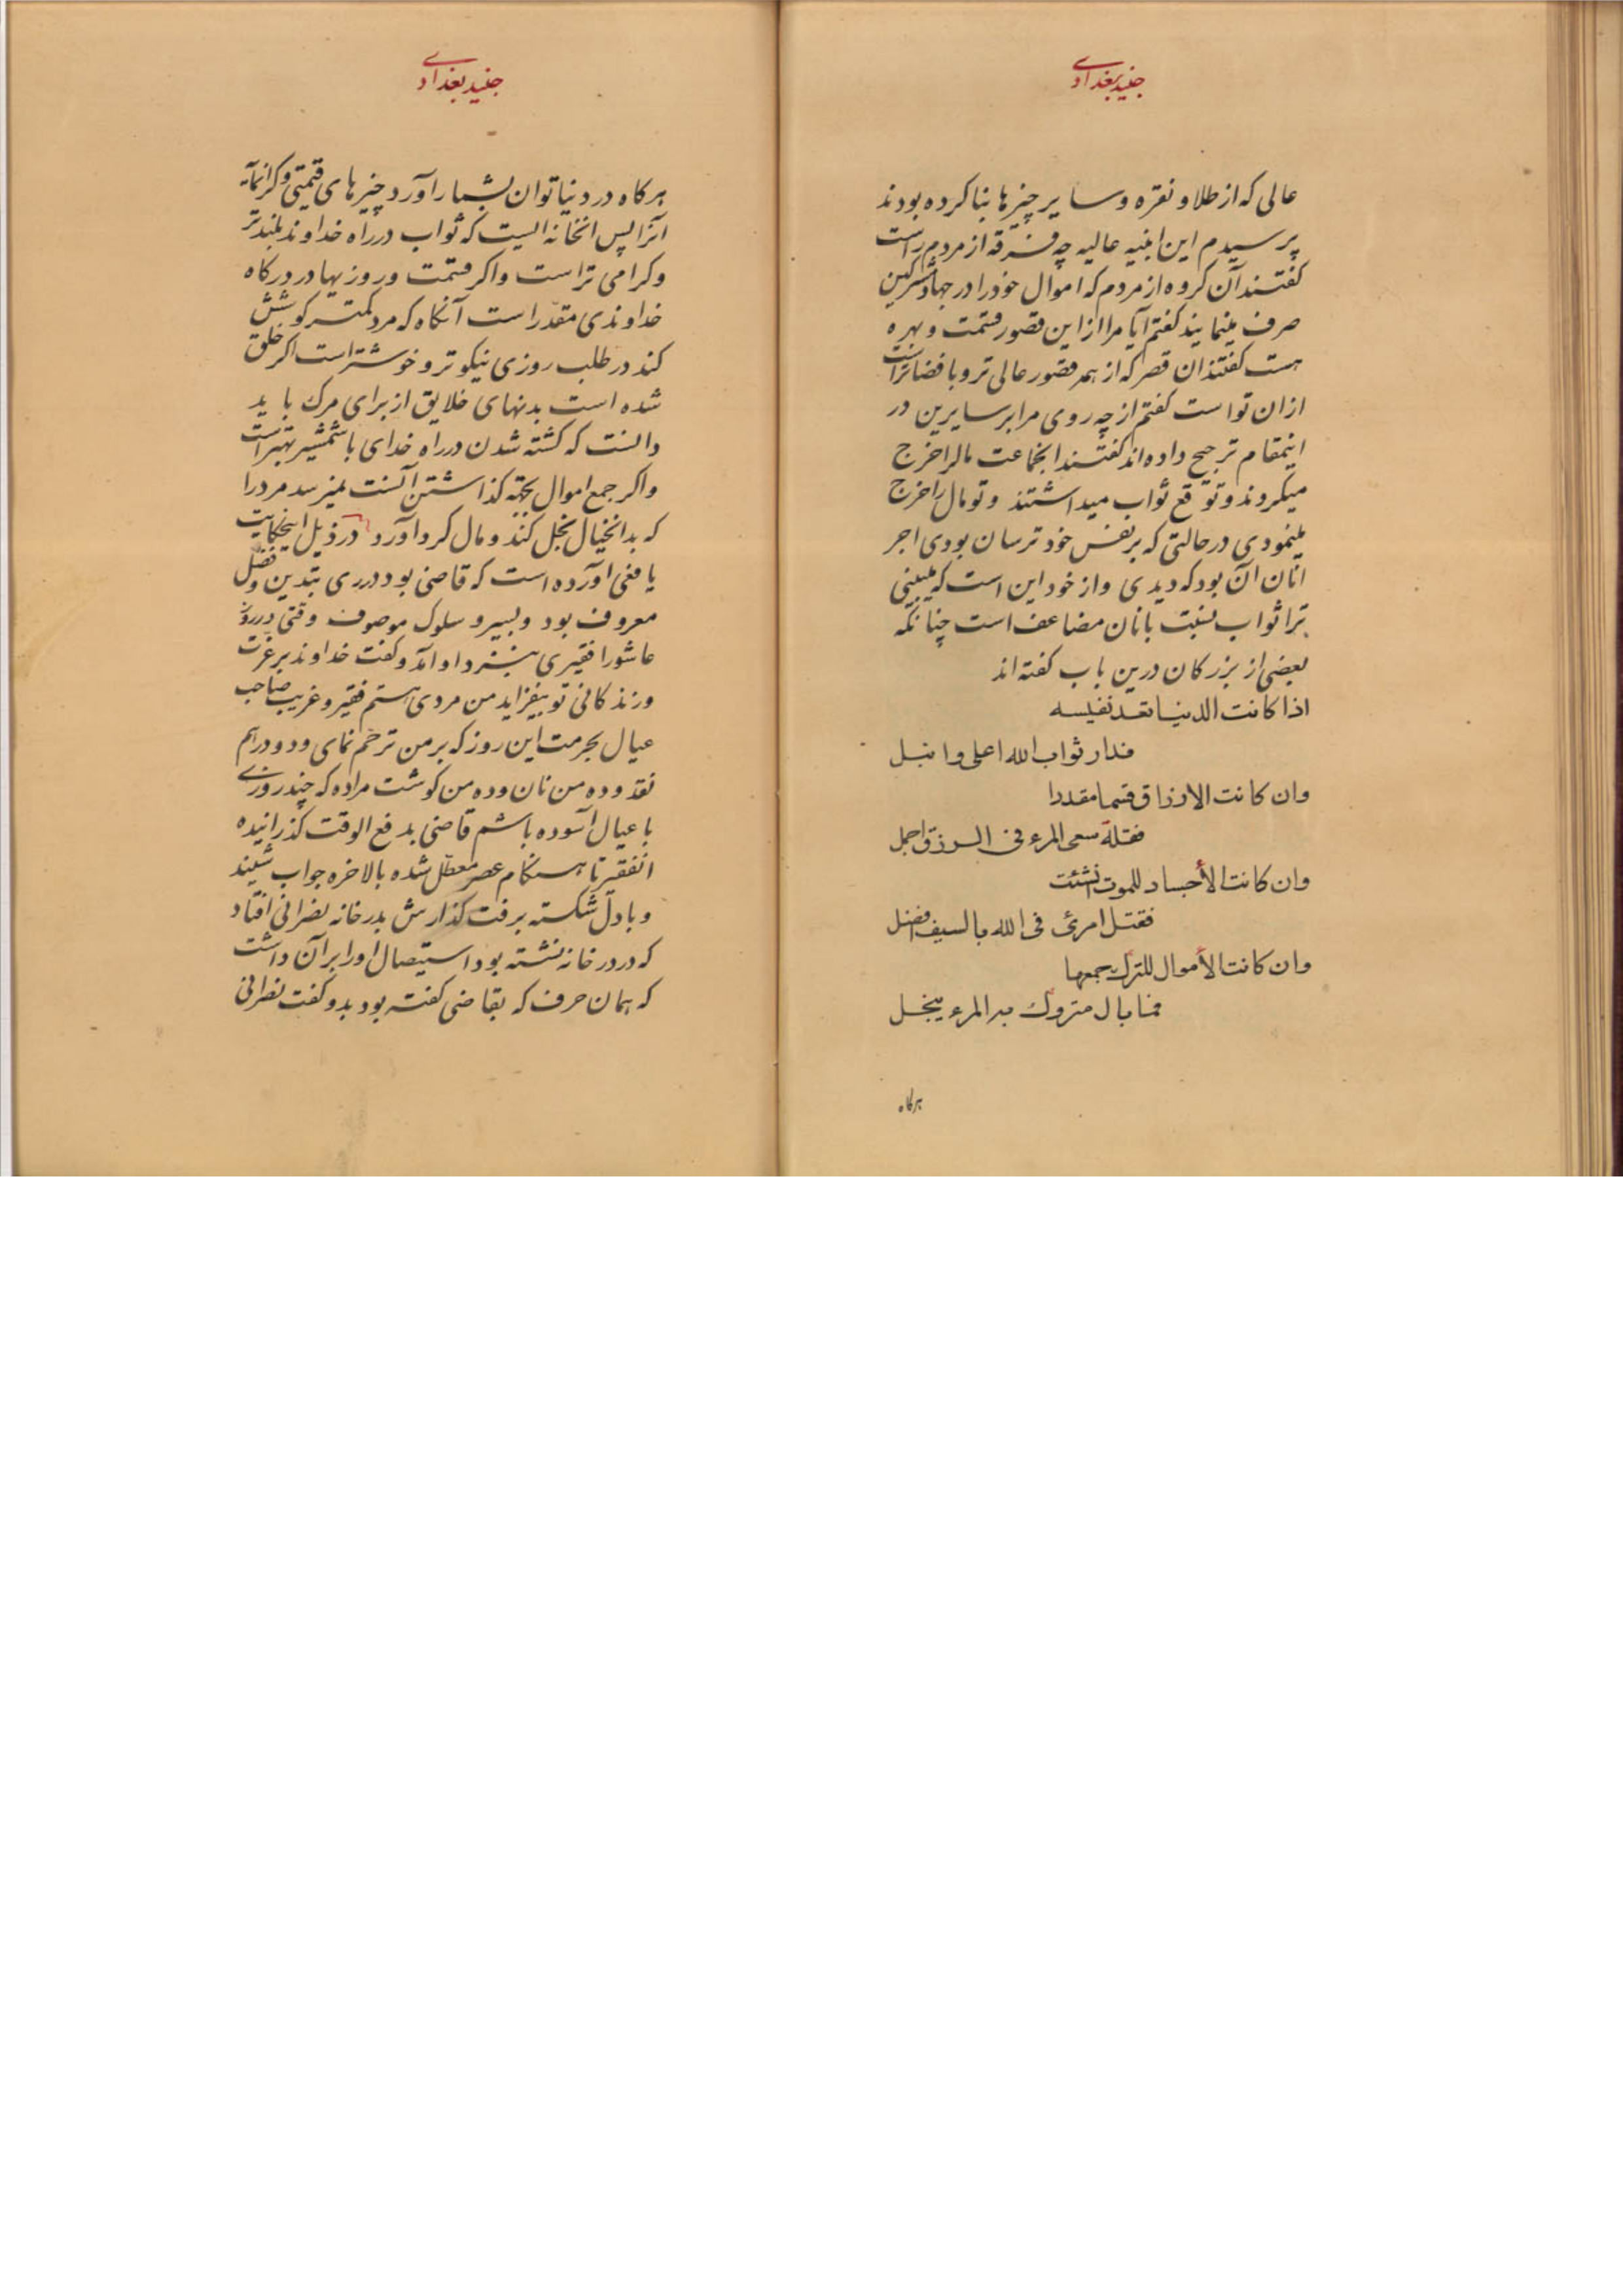 جنید بغدادی
عالی که از طلا و نقره و سایر چیزها بنا کرده بودند
پرسیدم این ابنیه عالیه چه فرقه از مردم راست
کفتند آن کروه از مردم که اموال خود را در جهاد مشرکین
صرف مینمایند کفتم آیا مرا از این قصور قسمت و بهره
هست کفتند ان قصر که از همه قصور عالی تر و با فضاتر است
ازان تو است کفتم از چه روی مرا بر سایرین در
اینمقام ترجیح داده اند کفتند انجماعت مال را خرج
میکروند و توقع ثواب میداشتند و تو مال را خرج
مینمودی در حالتی که بر نفس خود ترسان بودی اجر
انان آن بود که دیدی و از خود این است که میبینی
ترا ثواب نسبت بانان مضاعف است چنانکه
بعضی از بزرکان درین باب کفته اند
اذا کانت الدنیا تعد نفیسه
فدار ثواب الله اعلی و انبل
وان کانت الارزاق قسما مقدرا
فقلة سعی المرء فی الرزق اجمل
وان کانت الأجساد للموت انشئت
فقتل امرئ فی الله بالسیف افضل
وان کانت الأموال للترک جمعها
فما بال متروک به المرء یبخل
هرکاه
جنید بغدادی
هرکاه در دنیا توان بشمار آورد چیزهای قیمتی و کرانمایه
آنرا پس انخانه الیست که ثواب در راه خداوند بلندتر
و کرامی تر است و اکر قسمت و روزیها در درکاه
خداوندی مقدر است آنکاه که مرد کمتر کوشش
کند در طلب روزی نیکوتر و خوشتر است اکر خلق
شده است بدنهای خلایق از برای مرک باید
دانست که کشته شدن در راه خدای با شمشیر بهتر است
و اکر جمع اموال بجهة کذاشتن آنست نمیرسد مرد را
که بدانخیال بخل کند و مال کرد آورد در ذیل اینحکایت
یافعی آورده است که قاضی بود در ری بتدین و فضل
معروف بود و بسیر و سلوک موصوف وقتی در روز
عاشورا فقیری بنزد او آمد و کفت خداوند بر عزت
و زندکانی تو بیفزاید من مردی هستم فقیر و غریب صاحب
عیال بحرمت این روز که بر من ترحم نمای و دو درهم
نقد و ده من نان و ده من کوشت مرا ده که چند روزی
با عیال آسوده باشم قاضی بدفع الوقت کذرانیده
انفقیر تا هنکام عصر معطل شده بالاخره جواب شنید
و با دل شکسته برفت کذارش بدر خانه نصرانی افتاد
که در در خانه نشسته بود استیصال او را بر آن داشت
که همان حرف که بقاضی کفته بود بدو کفت نصرانی